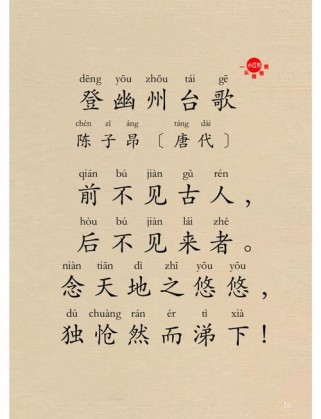 dēng yōu zhōu tái gē
登幽州台歌
chén zǐ áng táng dài
陈子昂〔唐代〕
qián bú jiàn gǔ rén
前不见古人，
hòu bú jiàn lái zhě
后不见来者。
niàn tiān dì zhī yōu yōu
念天地之悠悠，
dú chuàng rán ér tì xià
独怆然而涕下！
16